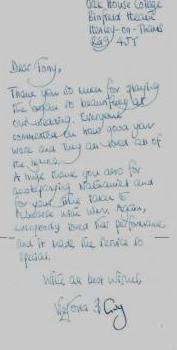 Oak House College
Binfield Heath
Henley-on-Thames
RG9 4JT
Dear Tony,
Thank you so much for playing
the organ so beautifully at
our wedding. Everyone
commented on how good you
were and they all loved all of
the
A huge thank you also for
accompanying Nathaniel and
for your time taken to
rehearse with him. Again,
everybody loved his performance
and it made the service so
special.
With all best wishes,
Victoria &